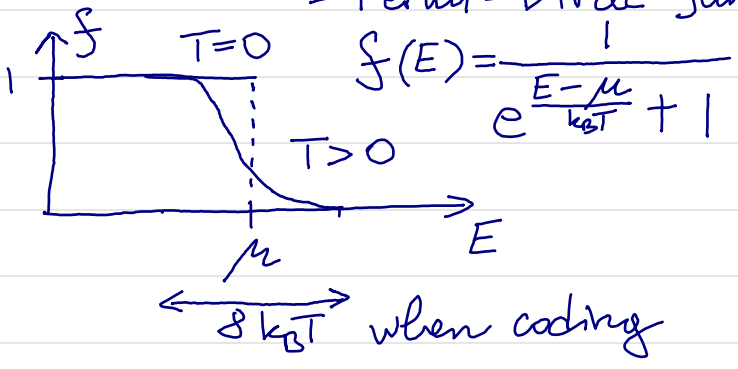 f T=0 f(E)=1/(e^((E-μ)/(k_BT)) + 1)
1
T>0
E
μ
8k_BT when coding